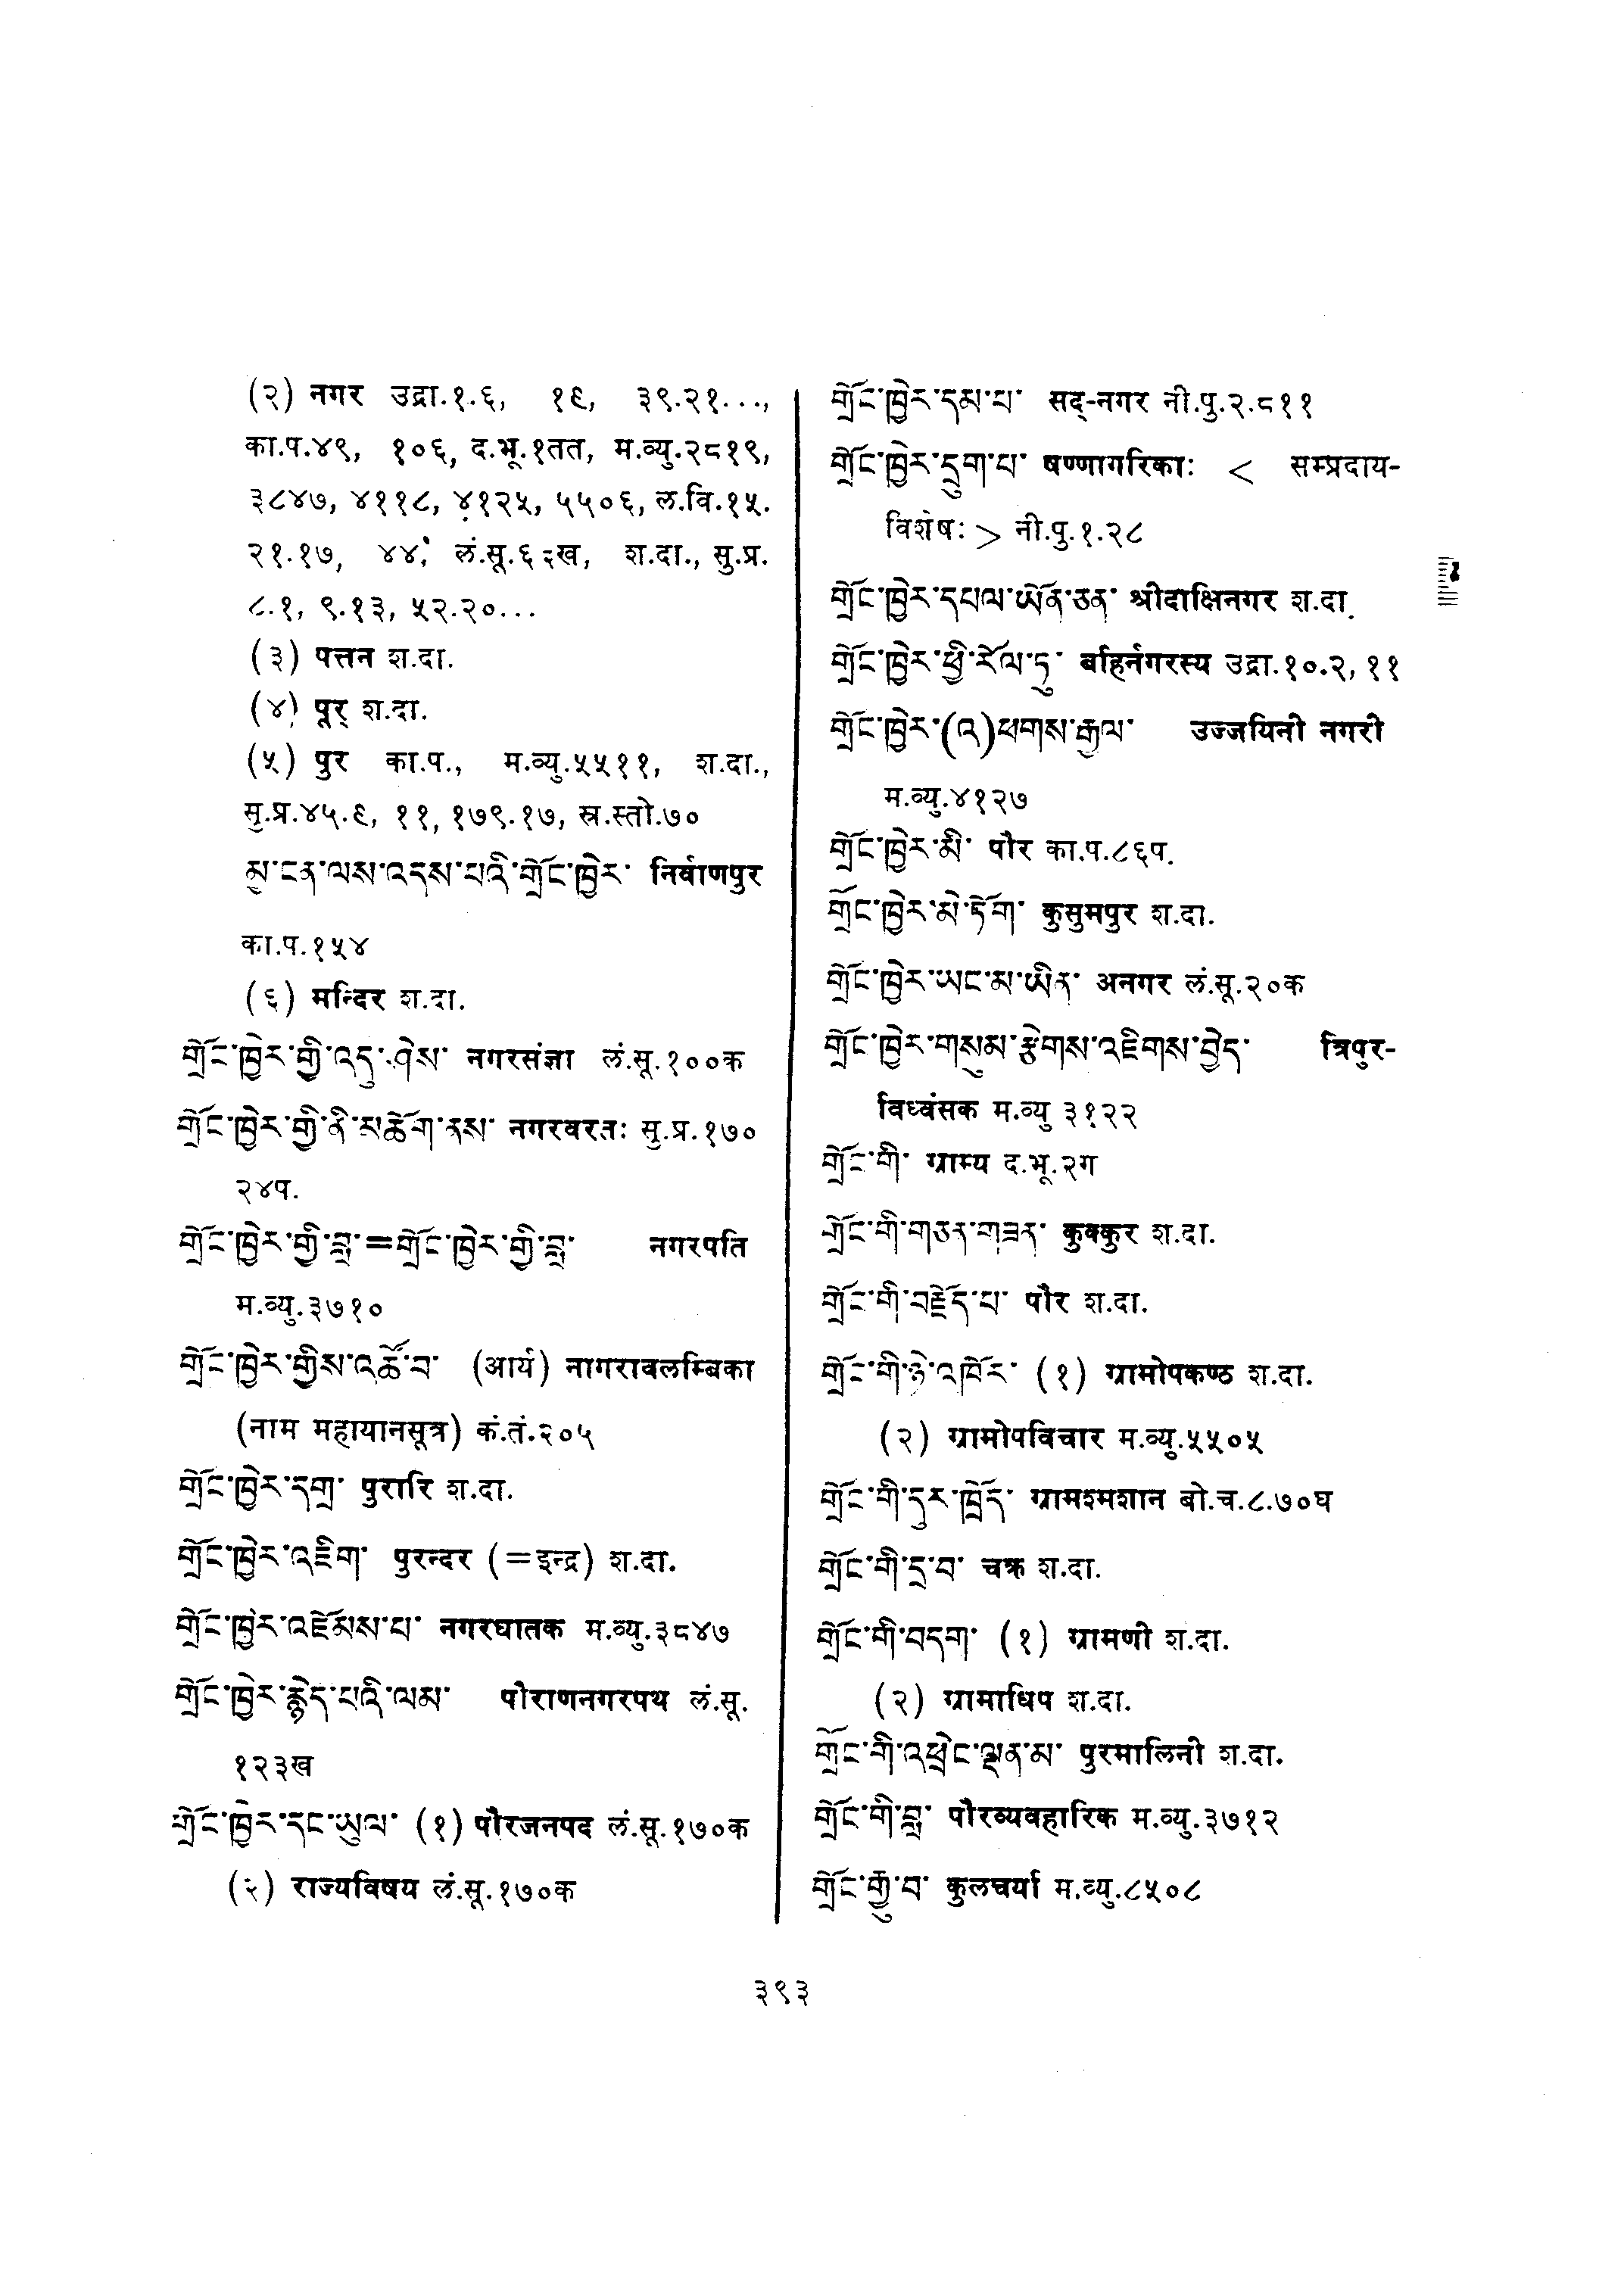 (२) नगर उद्रा.१.६, १९, ३९.२१...,
का.प.४९, १०६, द.भू.१तत, म.व्यु.२८१९,
३८४७, ४११८, ४१२५, ५५०६, ल.वि.१५.
२१.१७, ४४, लं.सू.६२ख, श.दा., सु.प्र.
८.१, ९.१३, ५२.२०...
(३) पत्तन श.दा.
(४) पूर् श.दा.
(५) पुर का.प., म.व्यु.५५११, श.दा.,
सु.प्र.४५.९, ११, १७९.१७, स्र.स्तो.७०
མྱ་ངན་ལས་འདས་པའི་གྲོང་ཁྱེར་ निर्वाणपुर
का.प.१५४
(६) मन्दिर श.दा.
གྲོང་ཁྱེར་གྱི་འདུ་ཤེས་ नगरसंज्ञा लं.सू.१००क
གྲོང་ཁྱེར་གྱི་ནི་མཆོག་ནས་ नगरवरतः सु.प्र.१७०
२४प.
གྲོང་ཁྱེར་གྱི་བླ་=གྲོང་ཁྱེར་གྱི་བླ་ नगरपति
म.व्यु.३७१०
གྲོང་ཁྱེར་གྱིས་འཚོ་བ་ (आर्य) नागरावलम्बिका
(नाम महायानसूत्र) कं.तं.२०५
གྲོང་ཁྱེར་དགྲ་ पुरारि श.दा.
གྲོང་ཁྱེར་འཇིག་ पुरन्दर (=इन्द्र) श.दा.
གྲོང་ཁྱེར་འཇོམས་པ་ नगरघातक म.व्यु.३८४७
གྲོང་ཁྱེར་རྙེད་པའི་ལམ་ पौराणनगरपथ लं.सू.
१२३ख
གྲོང་ཁྱེར་དང་ཡུལ་ (१) पौरजनपद लं.सू.१७०क
(२) राज्यविषय लं.सू.१७०क
གྲོང་ཁྱེར་དམ་པ་ सद्-नगर नी.पु.२.८११
གྲོང་ཁྱེར་དྲུག་པ་ षण्णागरिकाः < सम्प्रदाय-
विशेषः > नी.पु.१.२८
གྲོང་ཁྱེར་དཔལ་ཡོན་ཅན་ श्रीदाक्षिनगर श.दा.
གྲོང་ཁྱེར་ཕྱི་རོལ་ཏུ་ बहिर्नगरस्य उद्रा.१०.२, ११
གྲོང་ཁྱེར་(འ)ཕགས་རྒྱལ་ उज्जयिनी नगरी
म.व्यु.४१२७
གྲོང་ཁྱེར་མི་ पौर का.प.८६प.
གྲོང་ཁྱེར་མེ་ཏོག་ कुसुमपुर श.दा.
གྲོང་ཁྱེར་ཡང་མ་ཡིན་ अनगर लं.सू.२०क
གྲོང་ཁྱེར་གསུམ་རྩེགས་འཇིགས་བྱེད་ त्रिपुर-
विध्वंसक म.व्यु ३१२२
གྲོང་གི་ ग्राम्य द.भू.२ग
གྲོང་གི་གཅན་གཟན་ कुक्कुर श.दा.
གྲོང་གི་བརྗོད་པ་ पौर श.दा.
གྲོང་གི་ཉེ་འཁོར་ (१) ग्रामोपकण्ठ श.दा.
(२) ग्रामोपविचार म.व्यु.५५०५
གྲོང་གི་དུར་ཁྲོད་ ग्रामश्मशान बो.च.८.७०घ
གྲོང་གི་དྲ་བ་ चक्र श.दा.
གྲོང་གི་བདག་ (१) ग्रामणी श.दा.
(२) ग्रामाधिप श.दा.
གྲོང་གི་འཕྲེང་ལྡན་མ་ पुरमालिनी श.दा.
གྲོང་གི་བླ་ पौरव्यवहारिक म.व्यु.३७१२
གྲོང་རྒྱུ་བ་ कुलचर्या म.व्यु.८५०८
३९३